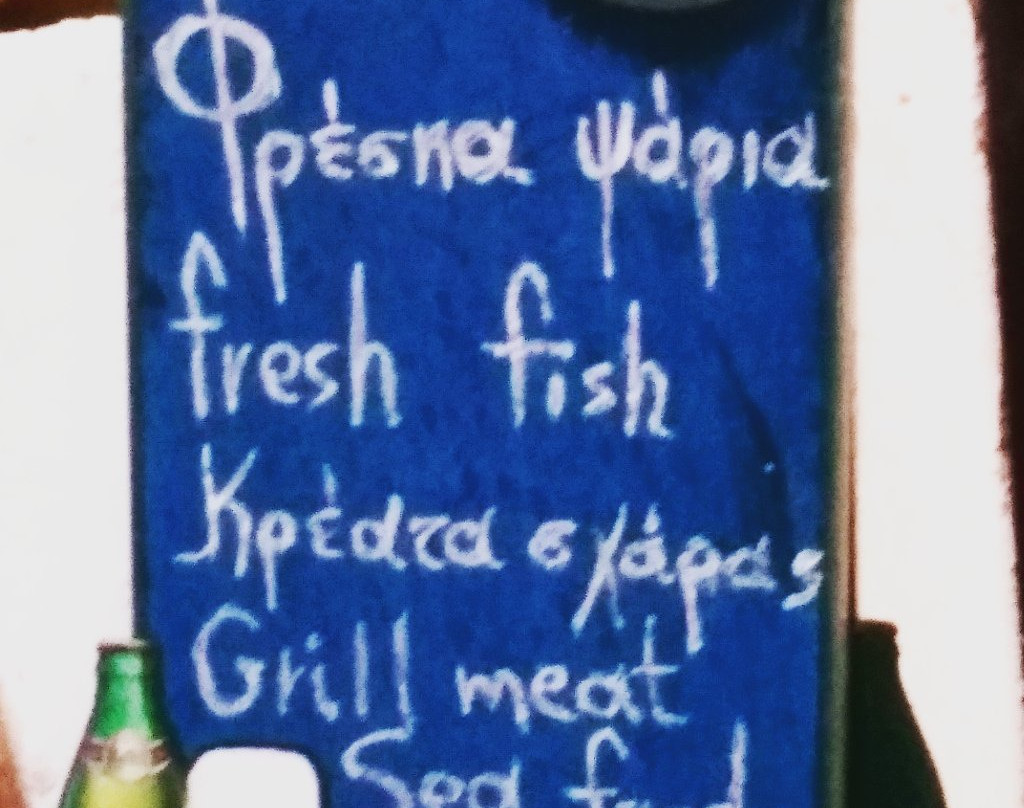 Φρέσκα ψάρια
fresh fish
Κρέατα σχάρας
Grill meat
Sea food